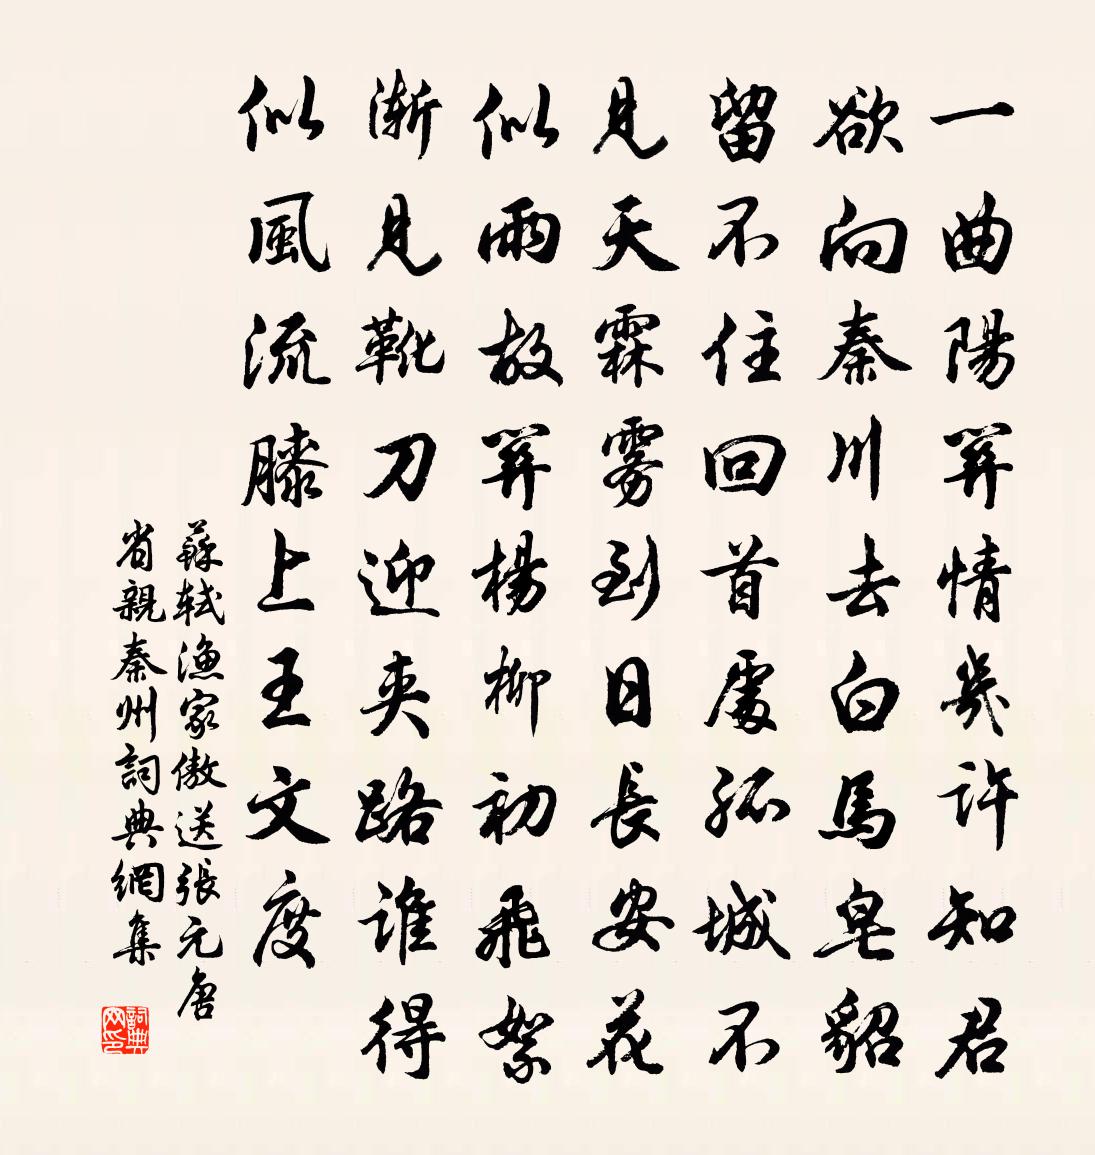 一曲陽關情幾許知君
欲向秦川去白馬皂貂
留不住回首處孤城不
見天霖雾到日長安花
似雨故關楊柳初飛絮
漸見靴刀迎夾路誰得
似風流膝上王文度
蘇軾漁家傲送張元唐
省親秦州詞典網集
詞典网印